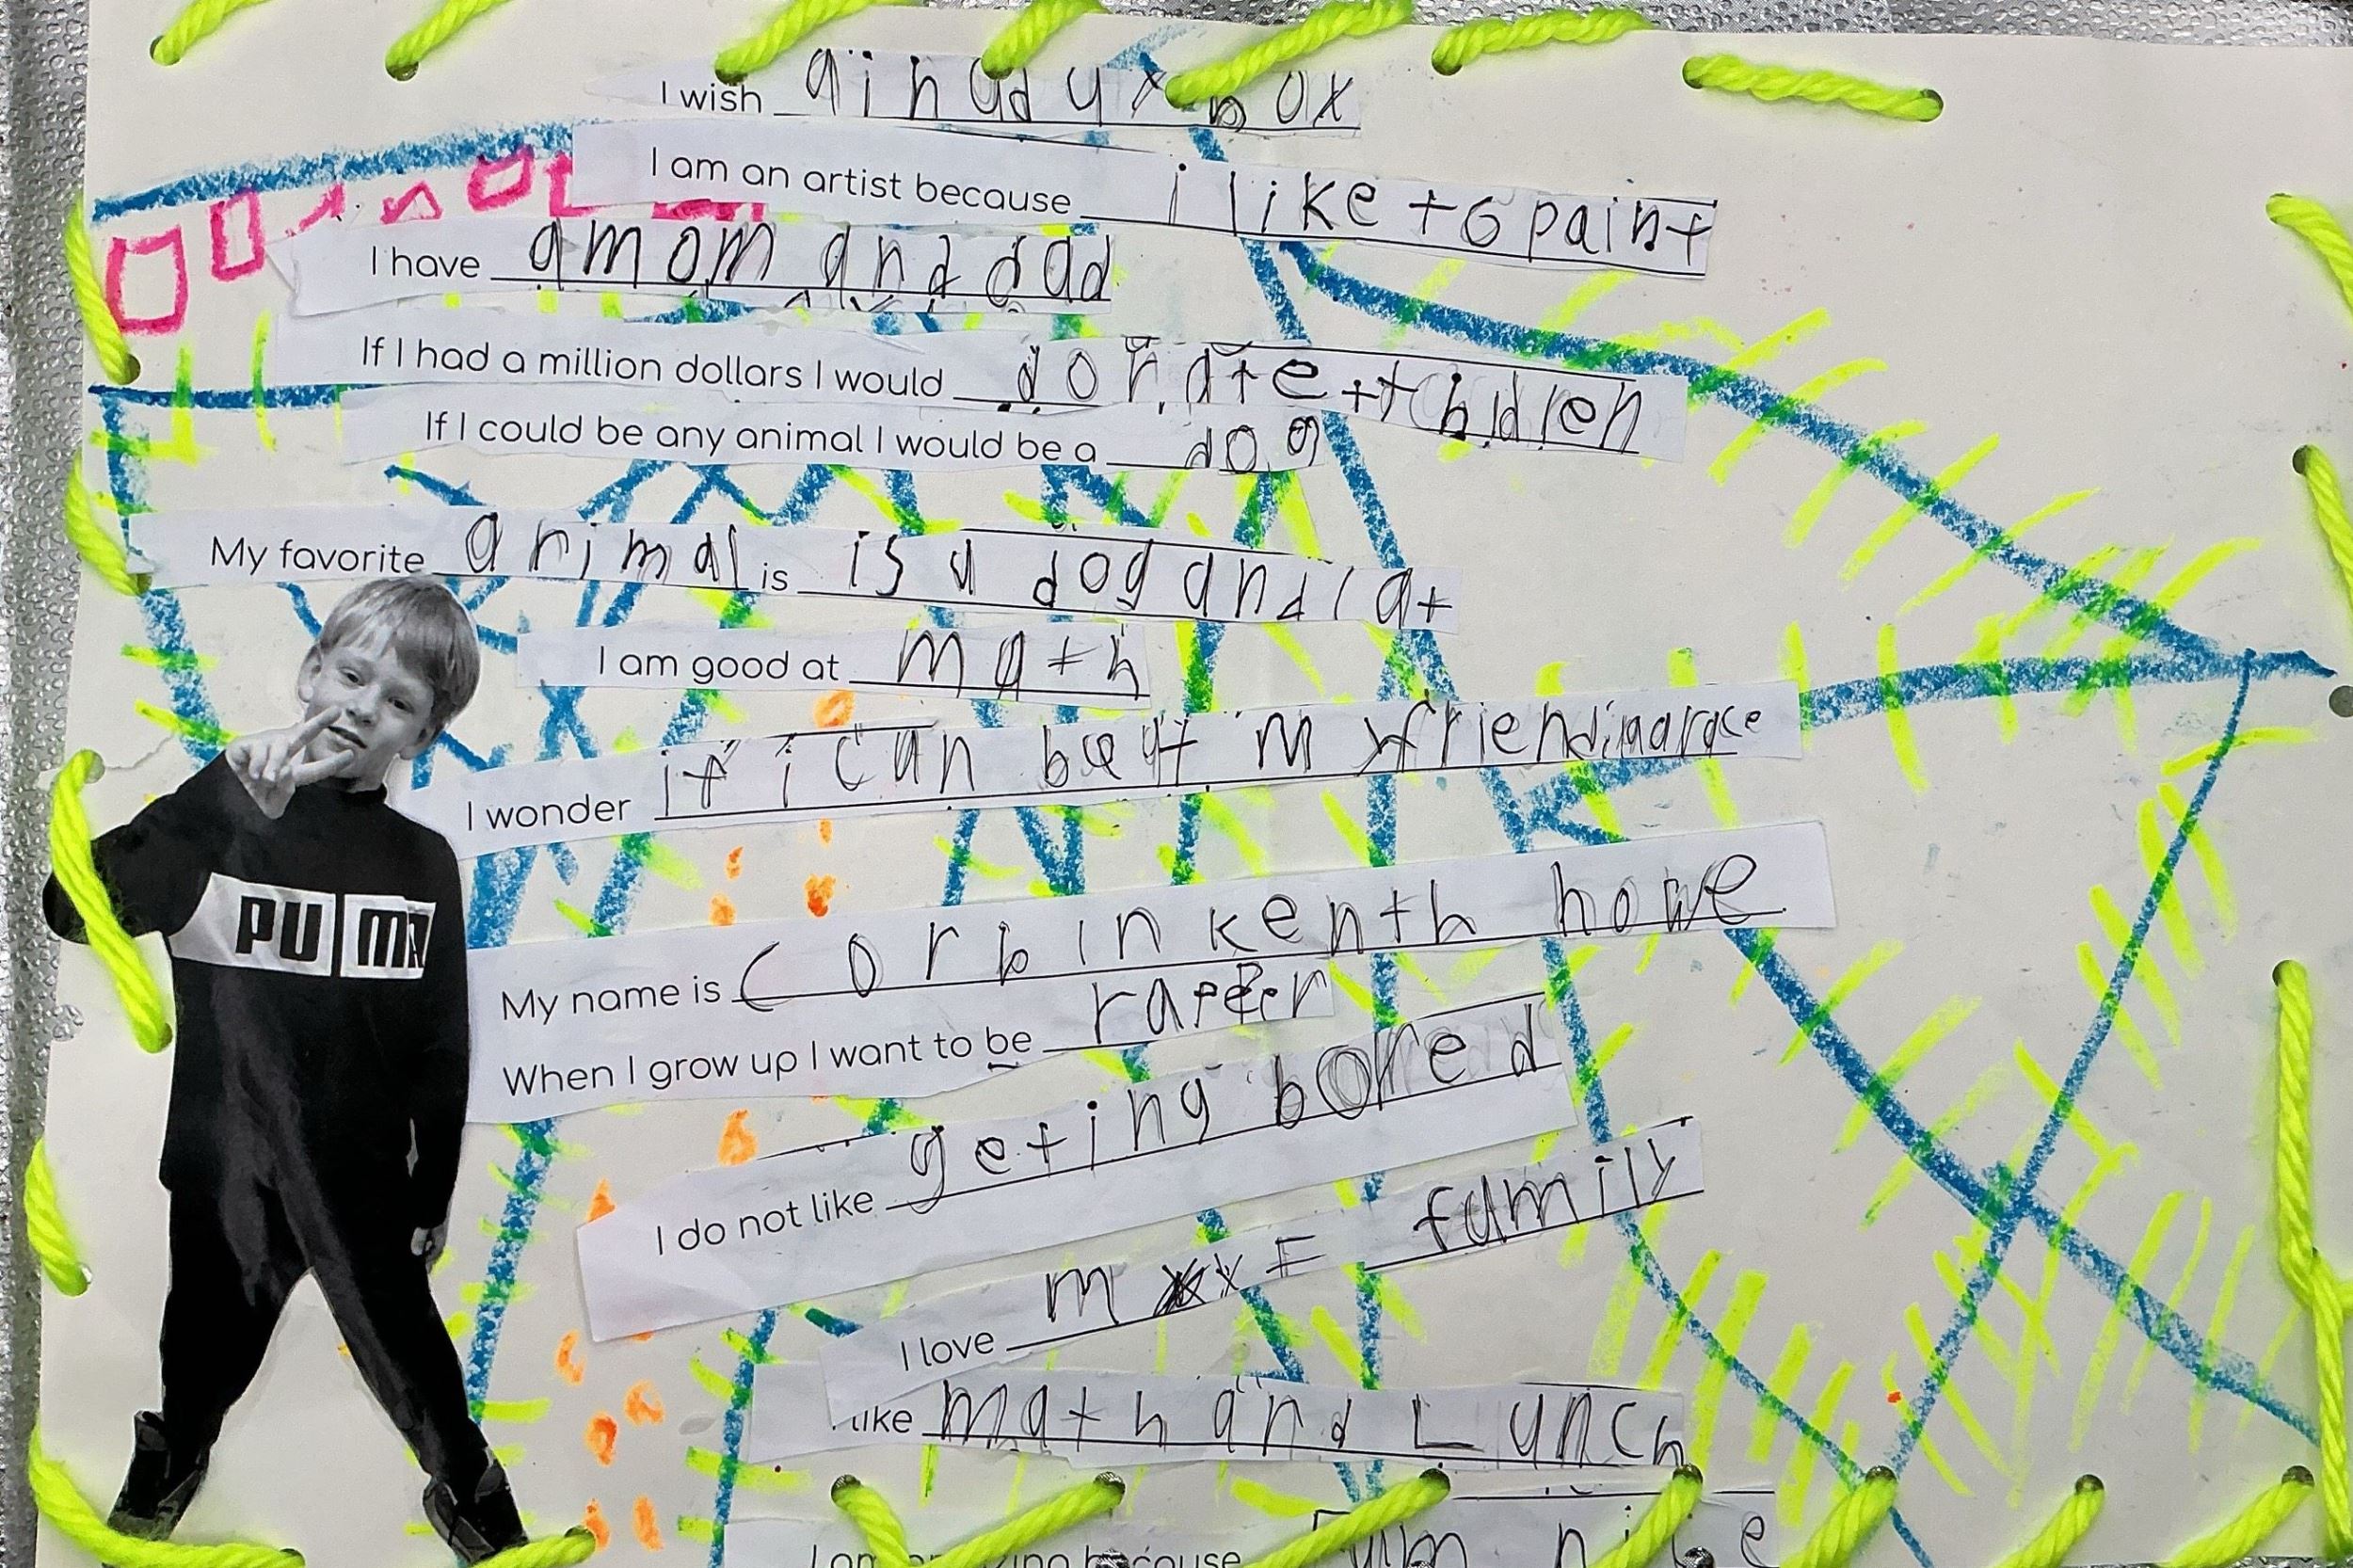 I wish a i h ad y x box
I am an artist because i like to paint
I have a mom and dad
If I had a million dollars I would donate tt chidlren
If I could be any animal I would be a dog
My favorite animal is is a dog and cat
I am good at math
I wonder if i can beat my friend in a race
PUMA
My name is corbin kenth howe
When I grow up I want to be
I do not like geting bored
I love my family
like math and Lunch
because nice